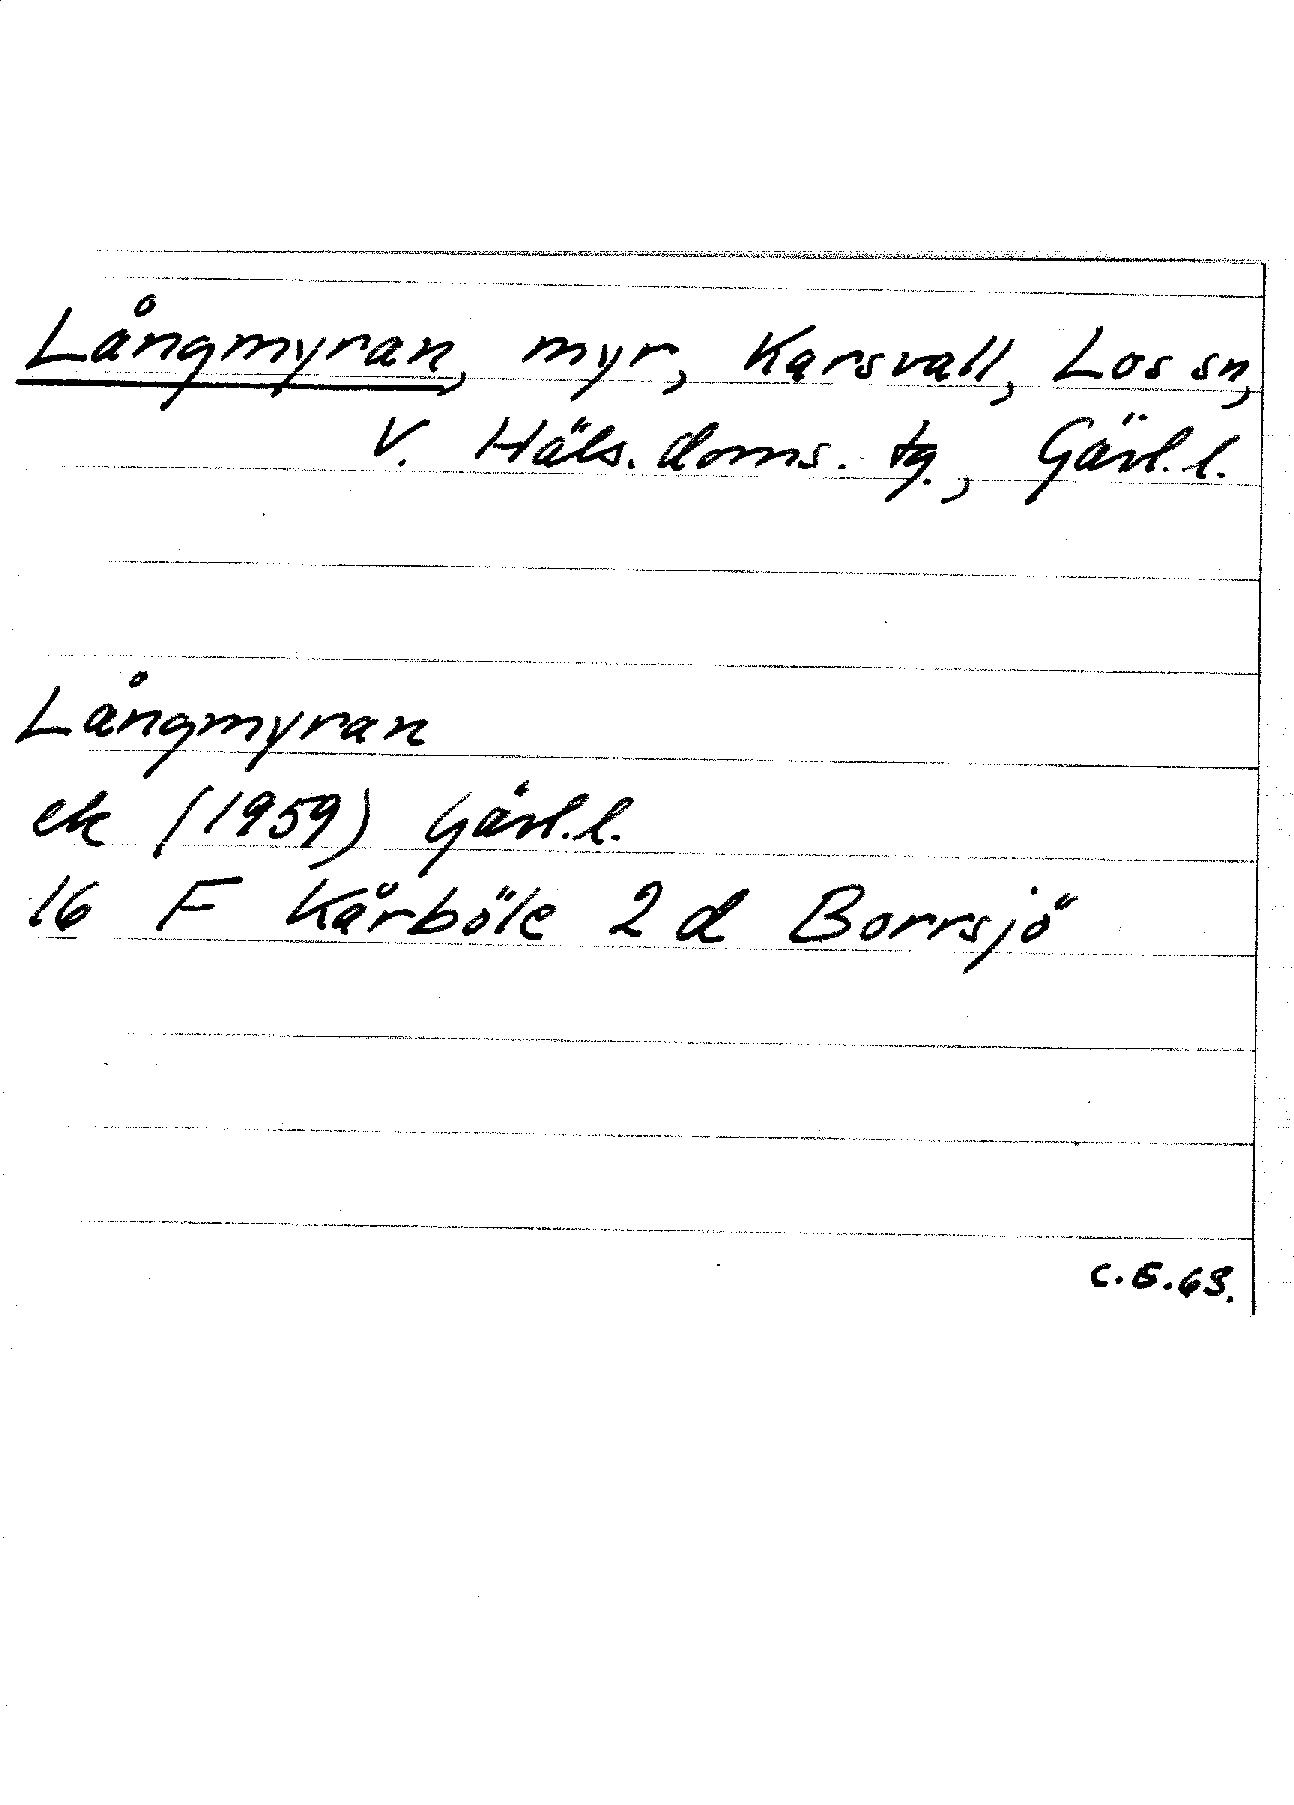 Långmyran, myr, Karsvall, Los sn,
V. Häls. doms. tg., Gävl. l.
Långmyran
ek (1959) Gävl. l.
16 F Kårböle 2 d Borrsjö
C.E.63.